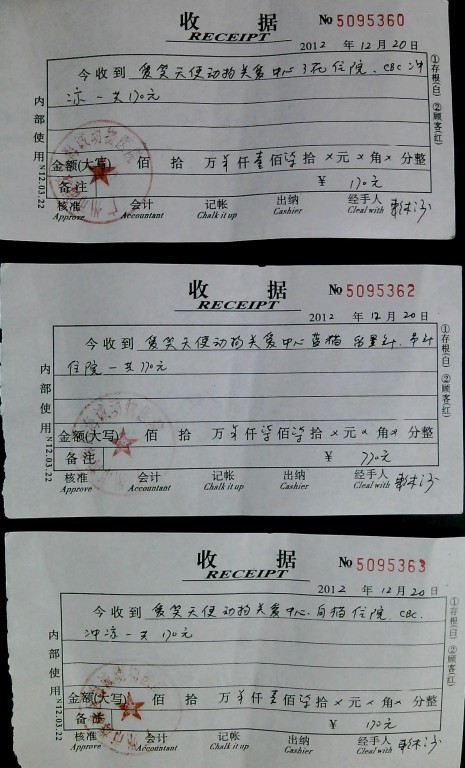 收 据 No 5095360
RECEIPT
2012 年 12 月 20 日
今收到 爱笑天使动物关爱中心 3 住院. CBC 冲
凉 一共170元
金额(大写) 佰 拾 万 仟 壹 佰 柒 拾 × 元 × 角 × 分整
备注 ¥ 170元
核准 会计 记帐 出纳 经手人
Approve Accountant Chalk it up Cashier Cleal with
内部使用 N12.03.22
①存根(白) ②顾客(红)
收 据 No 5095362
RECEIPT
2012 年 12 月 20 日
今收到 爱笑天使动物关爱中心 蓝猫
住院 一共770元
金额(大写) 佰 拾 万 仟 柒 佰 柒 拾 × 元 × 角 × 分整
备注 ¥ 770元
核准 会计 记帐 出纳 经手人
Approve Accountant Chalk it up Cashier Cleal with
内部使用 N12.03.22
①存根(白) ②顾客(红)
收 据 No 5095363
RECEIPT
2012 年 12 月 20 日
今收到 爱笑天使动物关爱中心. 白猫住院. CBC.
冲凉 一共170元
金额(大写) 佰 拾 万 仟 壹 佰 柒 拾 × 元 × 角 × 分整
备注 ¥ 170元
核准 会计 记帐 出纳 经手人
Approve Accountant Chalk it up Cashier Cleal with
内部使用 N12.03.22
①存根(白) ②顾客(红)